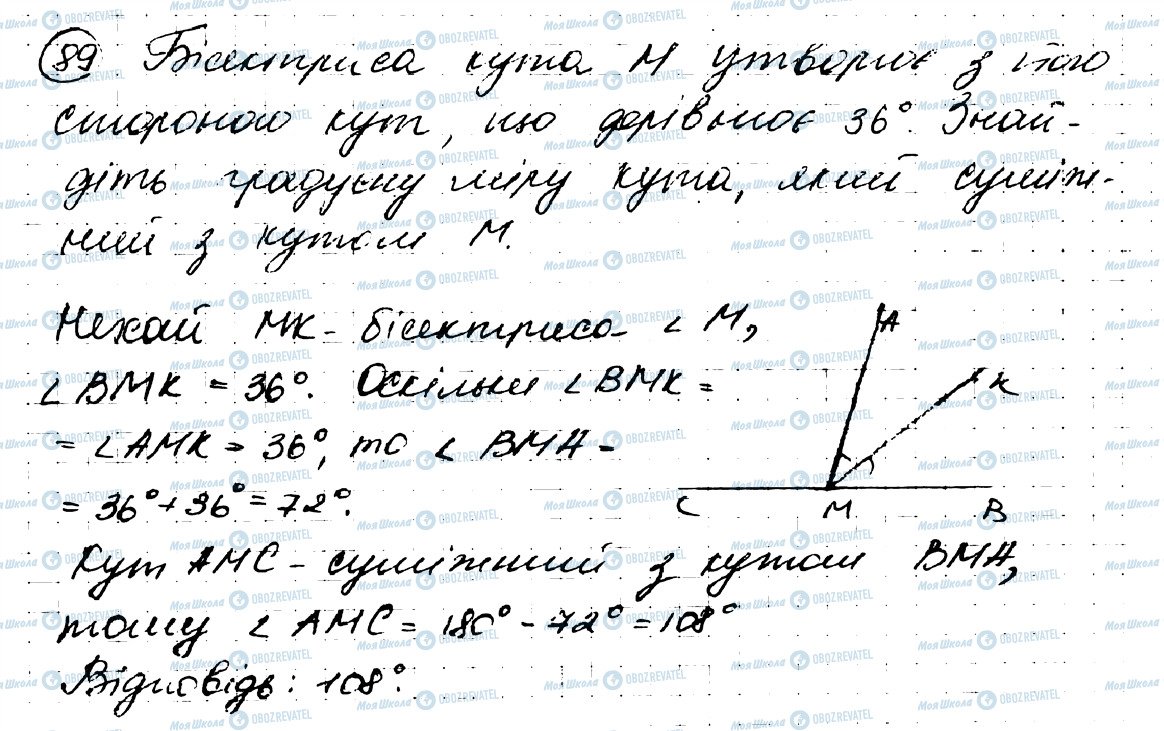 89 Бісектриса кута М утворює з його
стороною кут, що дорівнює 36°. Знай-
діть градусну міру кута, який суміж-
ний з кутом М.
Нехай МК - бісектриса ∠ М,
∠ ВМК = 36°. Оскільки ∠ ВМК =
= ∠ АМК = 36°, то ∠ ВМА =
= 36° + 36° = 72°.
Кут АМС - суміжний з кутом ВМА,
тому ∠ АМС = 180° - 72° = 108°
Відповідь: 108°.
А
К
С М В
Моя Школа OBOZREVATEL